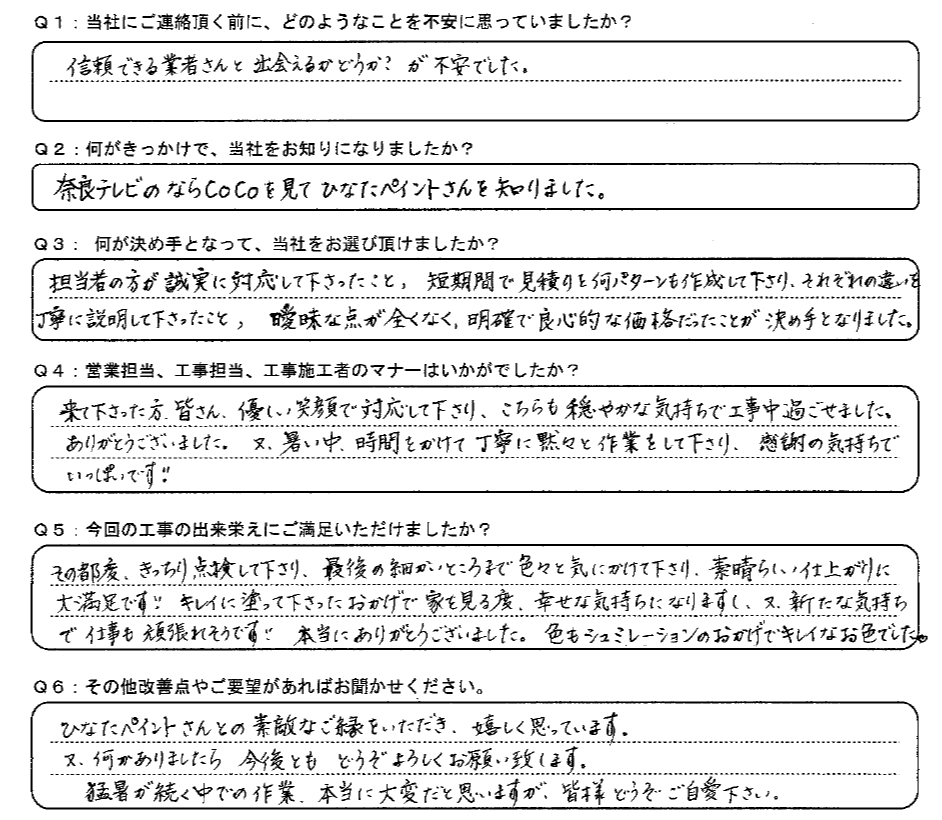 Q1:当社にご連絡頂く前に、どのようなことを不安に思っていましたか？
信頼できる業者さんと出会えるかどうか?が不安でした。
Q2:何がきっかけで、当社をお知りになりましたか？
奈良テレビのならCoCoを見てひなたペイントさんを知りました。
Q3: 何が決め手となって、当社をお選び頂けましたか？
担当者の方が誠実に対応して下さったこと, 短期間で見積りを何パターンも作成して下さり、それぞれの違いを
丁寧に説明して下さったこと, 曖昧な点が全くなく, 明確で良心的な価格だったことが決め手となりました。
Q4:営業担当、工事担当、工事施工者のマナーはいかがでしたか？
来て下さった方、皆さん、優しい笑顔で対応して下さり、こちらも穏やかな気持ちで工事中過ごせました。
ありがとうございました。又、暑い中、時間をかけて丁寧に黙々と作業をして下さり、感謝の気持ちで
いっぱいです!!
Q5:今回の工事の出来栄えにご満足いただけましたか？
その都度、きっちり点検して下さり、最後の細かいところまで色々と気にかけて下さり、素晴らしい仕上がりに
大満足です!! キレイに塗って下さったおかげで家を見る度、幸せな気持ちになりますし、又、新たな気持ち
で仕事も頑張れそうです!! 本当にありがとうございました。色もシュミレーションのおかげでキレイなお色でした。
Q6:その他改善点やご要望があればお聞かせください。
ひなたペイントさんとの素敵なご縁をいただき、嬉しく思っています。
又、何かありましたら今後ともどうぞよろしくお願い致します。
猛暑が続く中での作業、本当に大変だと思いますが、皆様どうぞご自愛下さい。